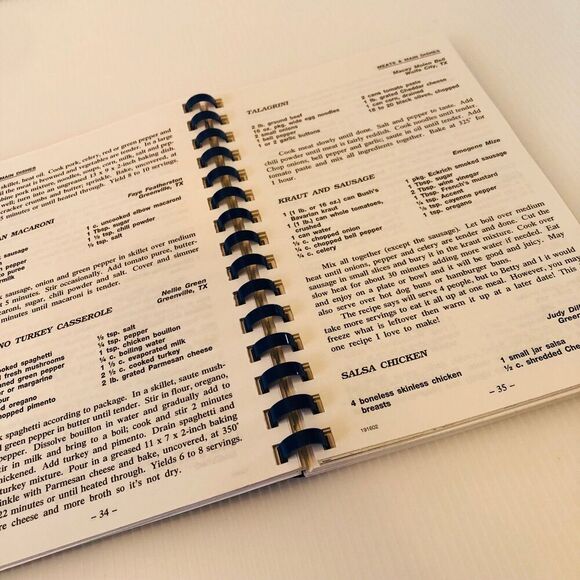 MAIN DISHES
skillet, heat oil. Cook pork, celery, red or green pepper and
til the meat is browned and vegetables are tender. In a large
mbine pork mixture, noodles, soup, corn, milk, salt and pep-
well; turn into an ungreased 13 x 9 x 2-inch baking dish.
crumbs and butter; sprinkle. Bake, uncovered, at
minutes or until heated through. Yield 8 to 10 servings.
Faye Featherston
Greenville, TX
AN MACARONI
1 c. uncooked elbow macaroni
1 Tbsp. chili powder
¼ tsp. salt
sausage, onion and green pepper in skillet over medium
5 minutes. Stir occasionally. Add tomato puree, butter-
uncooked macaroni, chili powder and salt. Cover and simmer
minutes until macaroni is tender.
Nellie Green
Greenville, TX
NO TURKEY CASSEROLE
oked spaghetti
fresh mushrooms
ned green pepper
or margarine
d oregano
chopped pimento
½ tsp. salt
¼ tsp. pepper
1 tsp. chicken bouillon
¼ c. boiling water
1 ½ c. evaporated milk
2 ½ c. cooked turkey
2 lb. grated Parmesan cheese
k spaghetti according to package. In a skillet, saute mush-
d green pepper in butter until tender. Stir in flour, oregano,
pepper. Dissolve bouillon in water and gradually add to
tir in milk and bring to a boil; cook and stir 2 minutes
hickened. Add turkey and pimento. Drain spaghetti and
turkey mixture. Pour in a greased 11 x 7 x 2-inch baking
inkle with Parmesan cheese and bake, uncovered, at 350°
22 minutes or until heated through. Yields 6 to 8 servings.
re cheese and more broth so it's not dry.
– 34 –
MEATS & MAIN DISHES
Macey Molen Bell
Wolfe City, TX
TALAGRINI
2 lb. ground beef
16 oz. pkg. wide egg noodles
2 small onions
1 bell pepper
1 or 2 garlic buttons
2 cans tomato paste
1 lb. grated Cheddar cheese
1 can corn, drained
18 to 20 black olives, chopped
Cook meat slowly until done. Salt and pepper to taste. Add
chili powder until meat is fairly reddish. Cook noodles until tender.
Chop onions, bell pepper and garlic; saute in oil until tender. Add
tomato paste and mix all ingredients together. Bake at 325° for
1 hour.
Emogene Mize
KRAUT AND SAUSAGE
1 (1 lb. or 15 oz.) can Bush's
Bavarian kraut
1 (1 lb.) can whole tomatoes,
crushed
1 can water
½ c. chopped onion
½ c. chopped bell pepper
¼ c. celery
1 pkg. Eckrich smoked sausage
1 tsp. sugar
2 Tbsp. wine vinegar
2 Tbsp. French's mustard
¼ tsp. accent
¼ tsp. cayenne pepper
½ tsp. oregano
Mix all together (except the sausage). Let boil over medium
heat until onions, pepper and celery are tender and done. Cut the
sausage in small slices and bury it in the kraut mixture. Cook over
slow heat for about 30 minutes, adding more water if needed. May
and enjoy on a plate or bowl and it will be good and juicy. May
also serve over hot dog buns or hamburger buns.
The recipe says it will serve 4 people, but to Betty and I it would
take more servings to eat it all up at one meal. However, you may
freeze what is leftover then warm it up at a later date! This is
one recipe I love to make!
Judy Di
Gree
SALSA CHICKEN
4 boneless skinless chicken
breasts
1 small jar salsa
½ c. shredded Che
191602
– 35 –